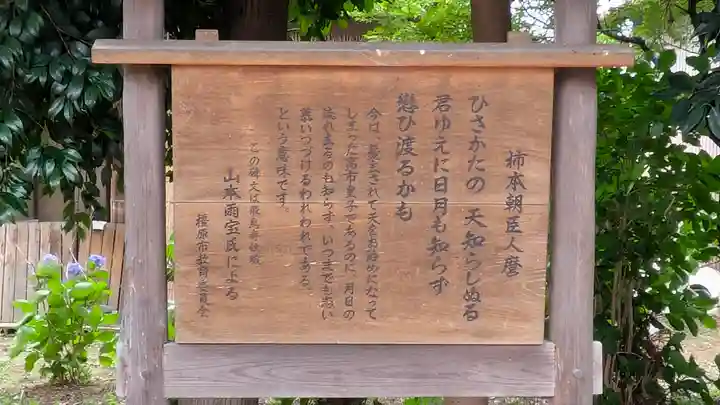 柿本朝臣人麿
ひさかたの 天知らしぬる
君ゆえに日月も知らず
戀ひ渡るかも
今は、薨去されて天をお治めになって
しまった高市皇子であるのに、月日の
流れ去るのも知らず、いつまでも恋い
慕いつづけるわれわれである。
という意味です。
この碑文は飛鳥寺
山本雨宝氏による
橿原市教育委員会